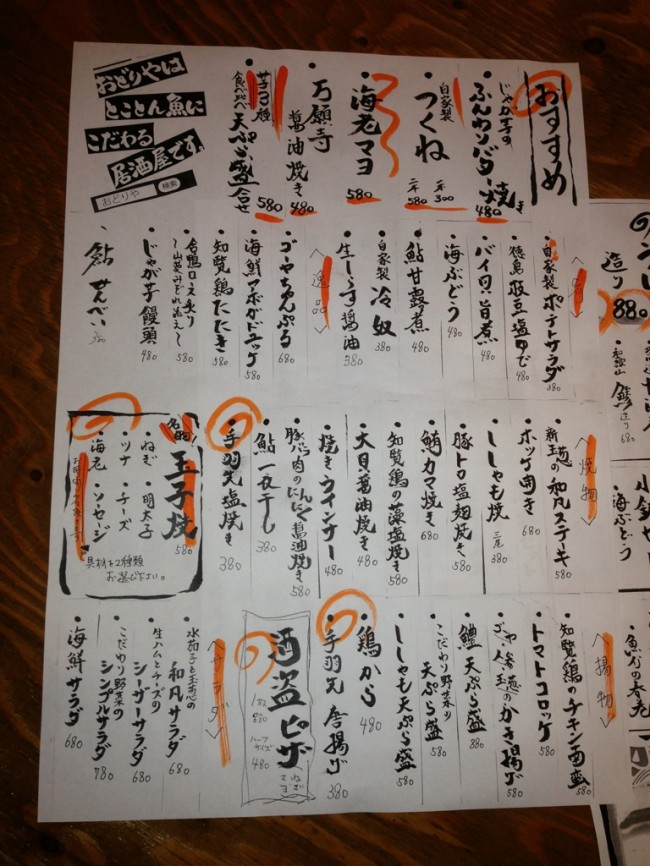 おすすめ
じゃが芋の
ふんわりバター焼き
480
自家製
つくね
一本 300
二本 580
海老マヨ
580
万願寺
醤油焼き
480
芋3種
食べ比べ
天ぷら盛合せ
580
おどりやは
とことん魚に
こだわる
居酒屋です。
おどりや
検索
自家製 ポテトサラダ
380
徳島 枝豆塩ゆで
480
バイ貝旨煮
480
海ぶどう
480
鮎甘露煮
480
自家製 冷奴
380
生しらす醤油
380
<逸品>
ゴーヤちゃんぷる
680
海鮮アボガドユッケ
580
知覧鶏たたき
580
合鴨ロース炙り
580
じゃが芋饅頭
480
鮎せんべい
<焼物>
新玉葱の和風ステーキ
580
ホッケ開き
680
ししゃも焼
三尾
380
豚トロ塩麹焼き
580
鮪カマ焼き
680
知覧鶏の藻塩焼き
580
大貝醤油焼き
480
焼きウインナー
480
豚バラ肉のにんにく醤油焼き
580
鮎一夜干し
380
手羽先塩焼き
380
名物 玉子焼
580
ねぎ ・明太子
ツナ ・チーズ
海老 ・ソーセージ
具材を2種類
お選び下さい。
<揚物>
知覧鶏のチキン南蛮
580
トマトコロッケ
580
かき揚げ
580
鱧天ぷら盛
こだわり野菜の
天ぷら盛
580
ししゃも天ぷら盛
580
鶏から
480
手羽先 唐揚げ
380
酒盗ピザ
ハーフ
サイズ
480
<サラダ>
水茄子と玉葱の
和風サラダ
680
生ハムとチーズの
シーザーサラダ
680
こだわり野菜の
シンプルサラダ
780
海鮮サラダ
680
造り
880
680
海ぶどう